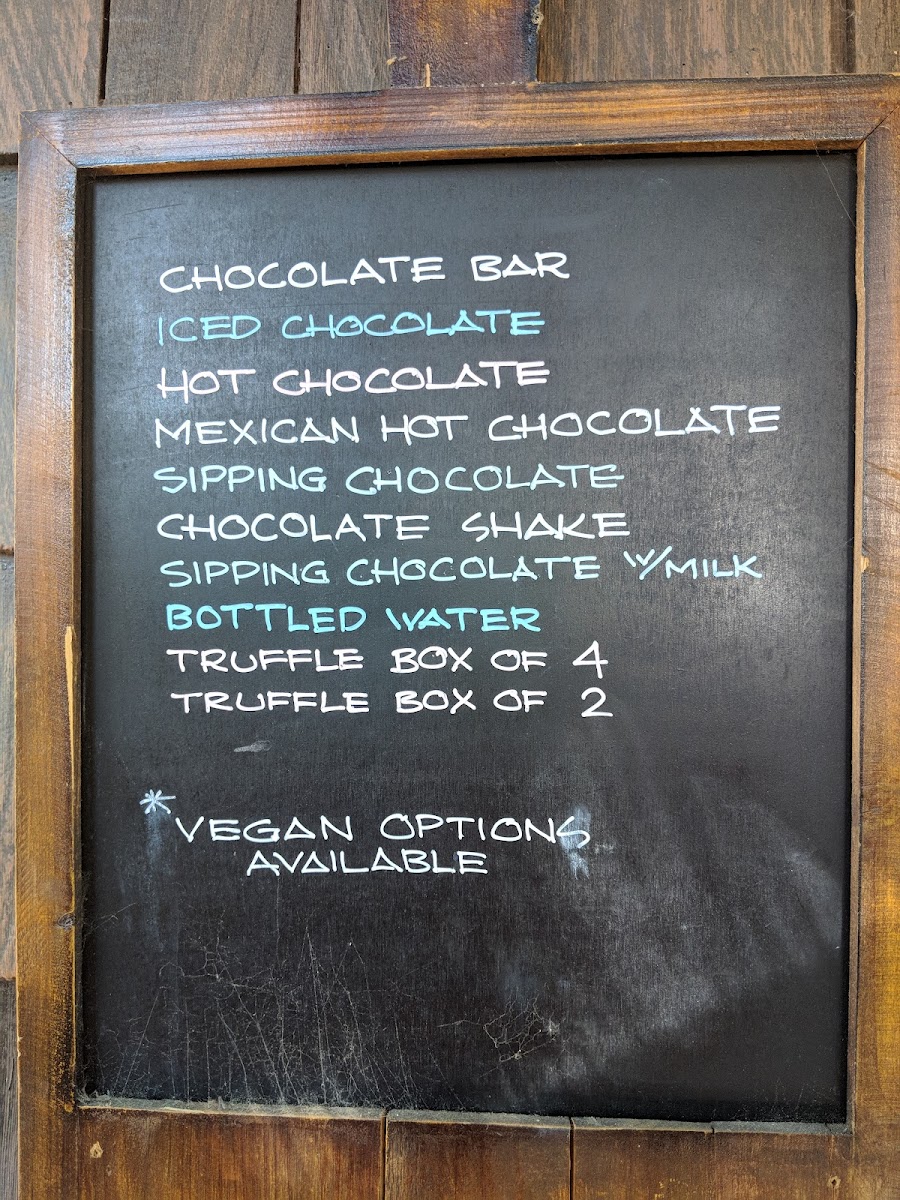 CHOCOLATE BAR
ICED CHOCOLATE
HOT CHOCOLATE
MEXICAN HOT CHOCOLATE
SIPPING CHOCOLATE
CHOCOLATE SHAKE
SIPPING CHOCOLATE W/MILK
BOTTLED WATER
TRUFFLE BOX OF 4
TRUFFLE BOX OF 2
*VEGAN OPTIONS
AVAILABLE